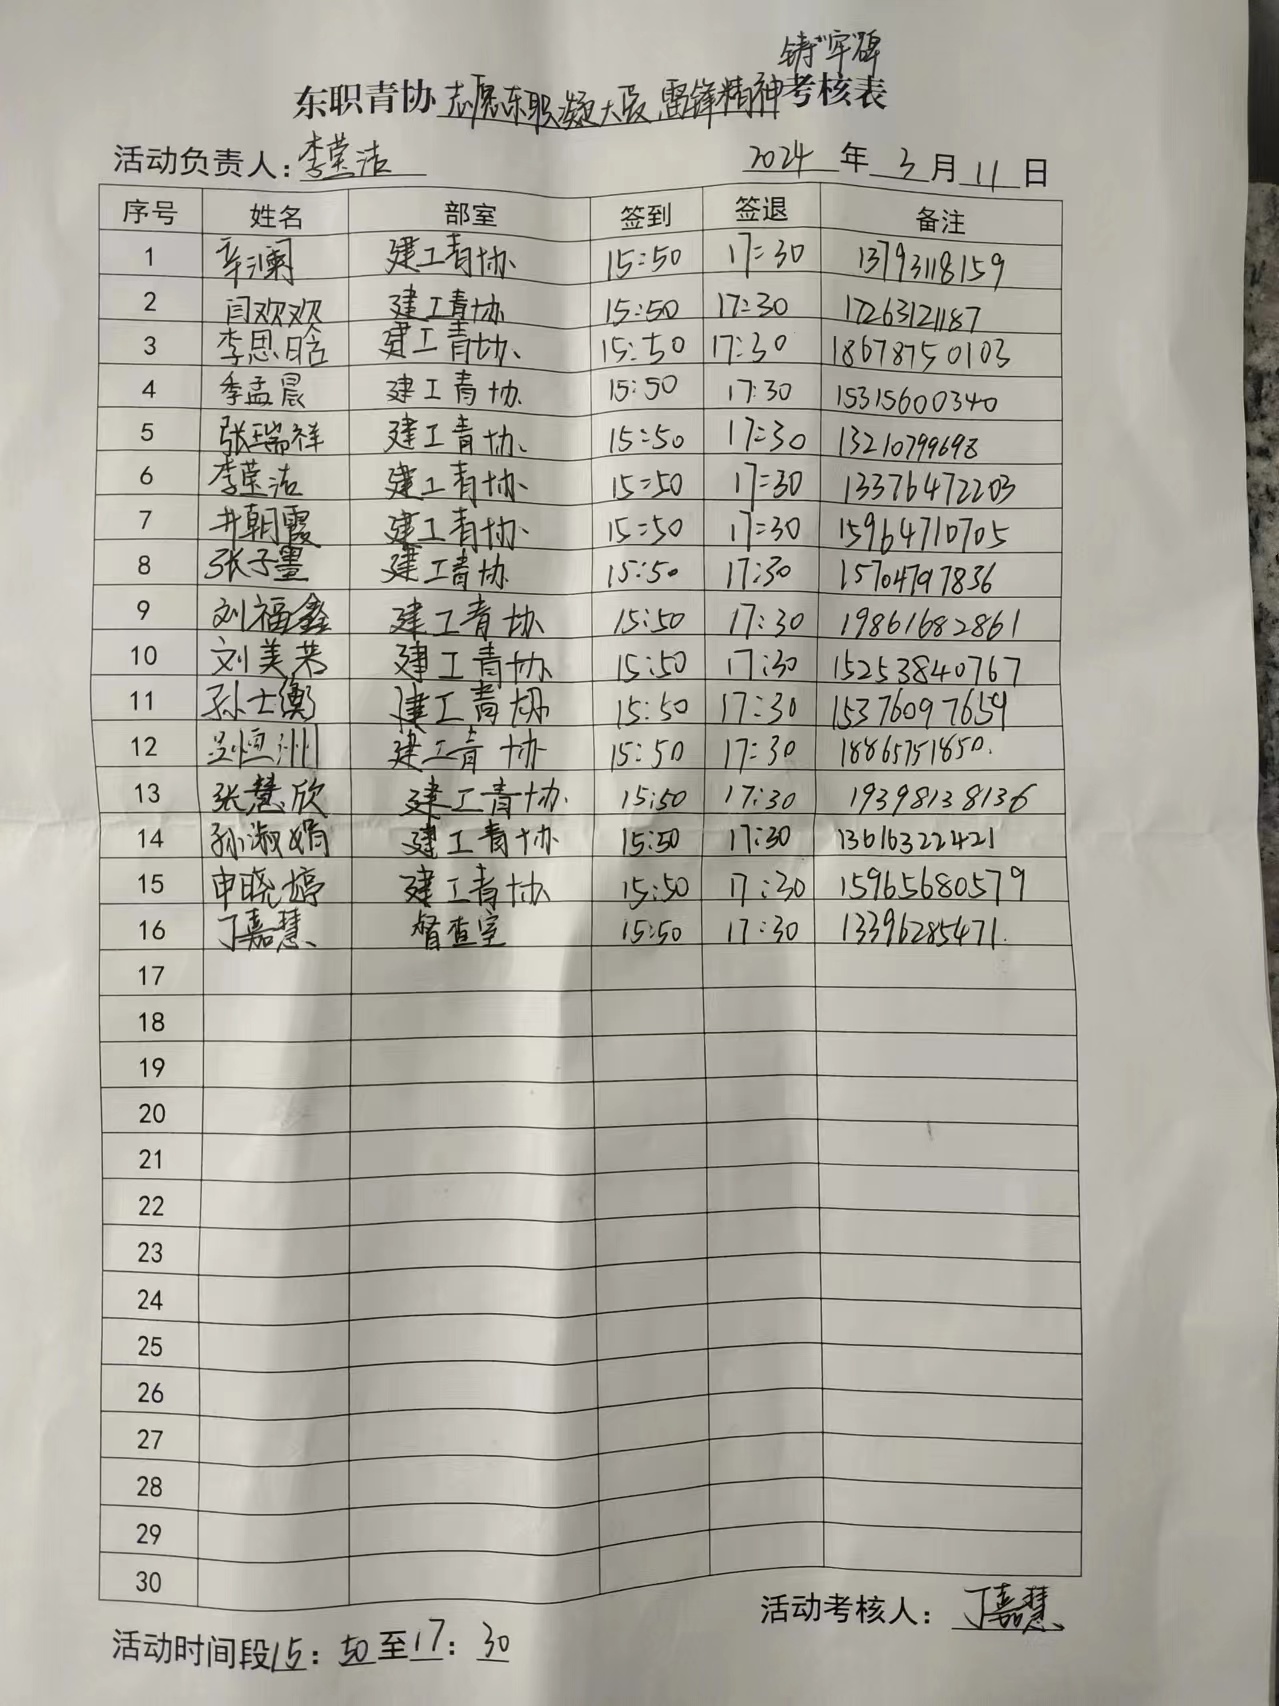 铸牢碑
东职青协志愿东职凝大爱,雷锋精神考核表
活动负责人:李荣洁 2024年3月11日
序号 姓名 部室 签到 签退 备注
1 辛澜 建工青协 15:50 17:30 13793118159
2 闫欢欢 建工青协 15:50 17:30 17263121187
3 李思晗 建工青协 15:50 17:30 18678750103
4 季孟晨 建工青协 15:50 17:30 15315600340
5 张瑞祥 建工青协 15:50 17:30 13210799698
6 李荣洁 建工青协 15:50 17:30 13376472203
7 井朝霞 建工青协 15:50 17:30 15964710705
8 张子墨 建工青协 15:50 17:30 15704797836
9 刘福鑫 建工青协 15:50 17:30 19861682861
10 刘美 建工青协 15:50 17:30 15253840767
11 孙士衡 建工青协 15:50 17:30 15376097659
12 恒洲 建工青协 15:50 17:30 18865751850.
13 张慧欣 建工青协 15:50 17:30 19398138136
14 孙淑娟 建工青协 15:50 17:30 13616322421
15 申晓婷 建工青协 15:50 17:30 15965680579
16 丁嘉慧 督查室 15:50 17:30 13396285471.
17
18
19
20
21
22
23
24
25
26
27
28
29
30
活动考核人:丁嘉慧
活动时间段15:50至17:30